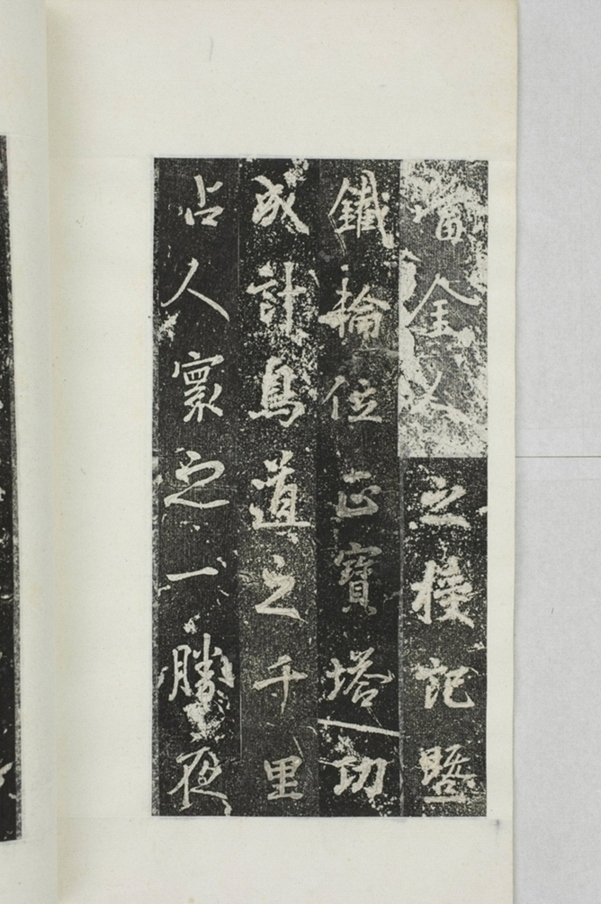 金之授記暨
鐵輪位正寶塔功
成計鳥道之千里
占人寰之一勝夜